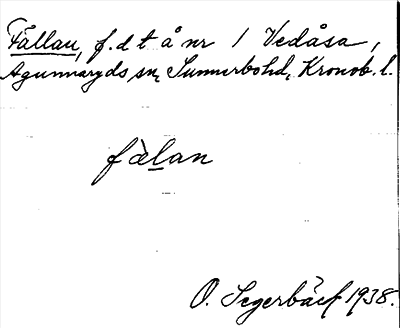 Fällan, f.d t å nr 1 Vedåsa,
Agunnaryds sn, Sunnerbo hd, Kronob. l.
fälan
O. Segerbäck 1938.